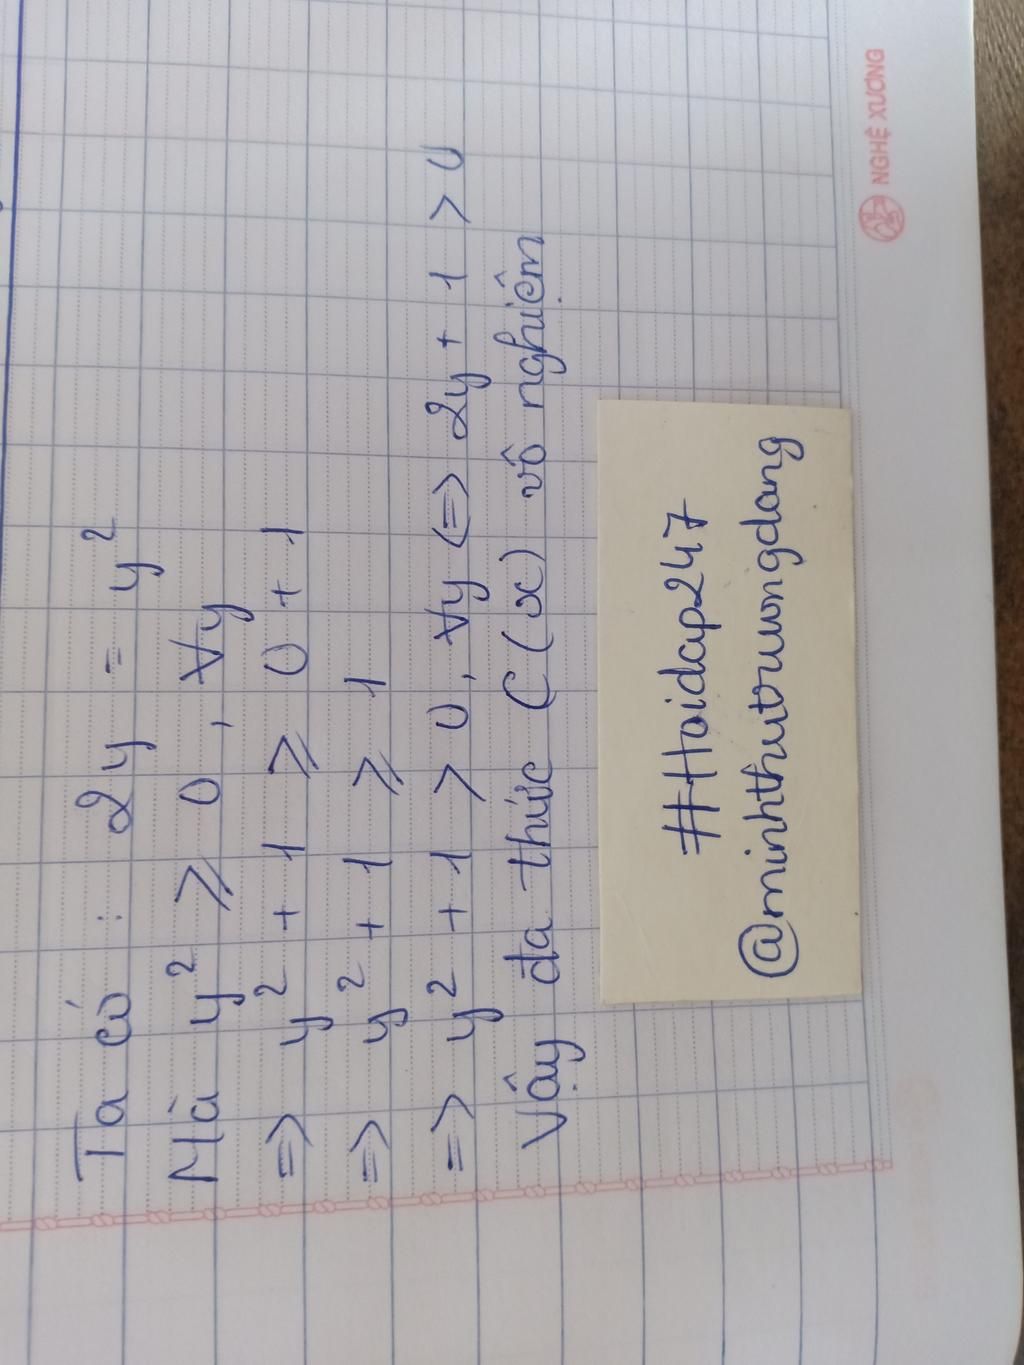 Ta có : 2y = y²
Mà y² ⩾ 0, ∀y
=> y² + 1 ⩾ 0 + 1
=> y² + 1 ⩾ 1
=> y² + 1 > 0, ∀y (=> 2y + 1 > 0
Vậy đa thức C(x) vô nghiệm
#Hoidap247
@minhthutruongdang
NGHỆ XƯƠNG